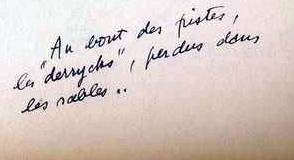 "Au bout des pistes,
les "derrycks", perdus dans
les sables..